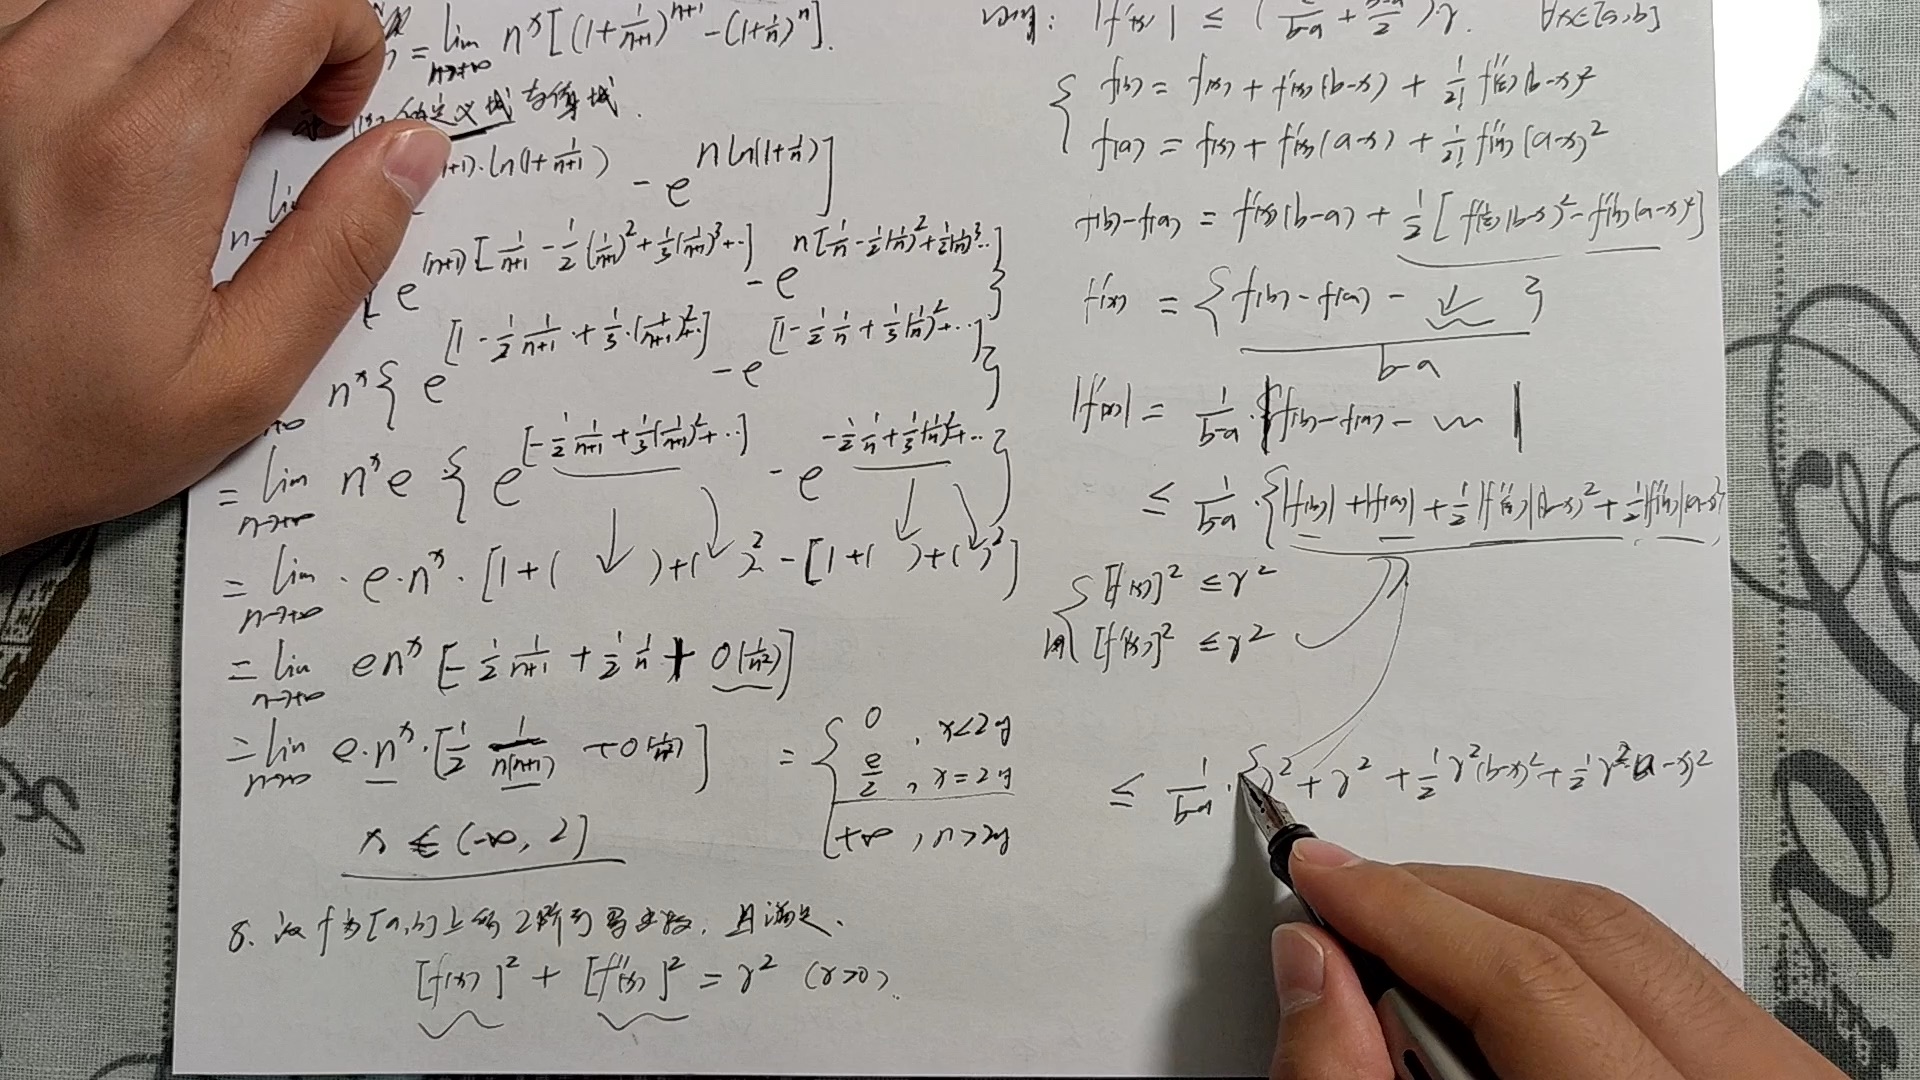 = lim n^x [(1+1/(n+1))^(n+1) - (1+1/n)^n].
n→+∞
定义域与值域.
lim +1)·ln(1+1/(n+1)) - e^(n ln(1+1/n)) ]
e^((n+1)[1/(n+1) - 1/2 (1/(n+1))^2 + 1/3 (1/(n+1))^3 + ··]) - e^(n[1/n - 1/2 (1/n)^2 + 1/2 (1/n)^3 ··]) }
n^x { e^([1 - 1/2 1/(n+1) + 1/3·(1/(n+1))^2 + ·]) - e^([1 - 1/2 1/n + 1/3 (1/n)^2 + ···]) }
= lim n^x e { e^([-1/2 1/(n+1) + 1/3 (1/(n+1))^2 + ··]) - e^(-1/2 1/n + 1/3 (1/n)^2 + ··) }
n→+∞
= lim · e·n^x · [1+( ↓ )+( ↓ )^2 - [1+( ↓ )+( ↓ )^2]
n→+∞
= lim en^x [-1/2 1/(n+1) + 1/2 1/n + O(1/n^2)]
n→+∞
= lim e·n^x·[1/2 1/(n(n+1)) + O(1/n^2)] = { 0 , x<2时
n→+∞
e/2 , x=2时
+∞ , n>2时
x ∈ (-∞, 2]
8. 设 f 为 [a,b] 上的 2阶可导函数, 且满足.
[f(x)]^2 + [f''(x)]^2 = r^2 (r>0).
证明: |f'(x)| ≤ (2/(b-a) + (b-a)/2) r. ∀x∈[a,b]
{ f(b) = f(x) + f'(x)(b-x) + 1/2! f''(ξ)(b-x)^2
f(a) = f(x) + f'(x)(a-x) + 1/2! f''(η)(a-x)^2
f(b)-f(a) = f'(x)(b-a) + 1/2 [f''(ξ)(b-x)^2 - f''(η)(a-x)^2]
f'(x) = { f(b) - f(a) - ↓ }
b-a
|f'(x)| = 1/(b-a) · | f(b) - f(a) - ~ |
≤ 1/(b-a) · { |f(b)| + |f(a)| + 1/2 |f''(ξ)|(b-x)^2 + 1/2 |f''(η)|(a-x)^2
{ [f(x)]^2 ≤ r^2
[f''(x)]^2 ≤ r^2
≤ 1/(b-a) · { r^2 + r^2 + 1/2 r^2 (b-x)^2 + 1/2 r^2 (a-x)^2